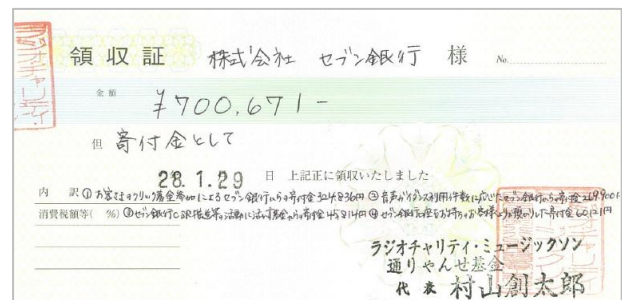 ラジオチャリティ
領収証 株式会社 セブン銀行 様 No.
金額 ¥700,671-
但 寄付金として
28.1.29 日 上記正に領収いたしました
内 訳 ① お客さまのクリック募金参加によるセブン銀行からの寄付金324,836円 ② 音声ガイダンス利用件数に応じたセブン銀行からの寄付金269,900円
消費税額等( %) ③ セブン銀行 活動に 寄付金45,814円 ④ セブン銀行 お客様より 寄付金60,121円
ラジオチャリティ・ミュージックソン
通りゃんせ基金
代表 村山創太郎